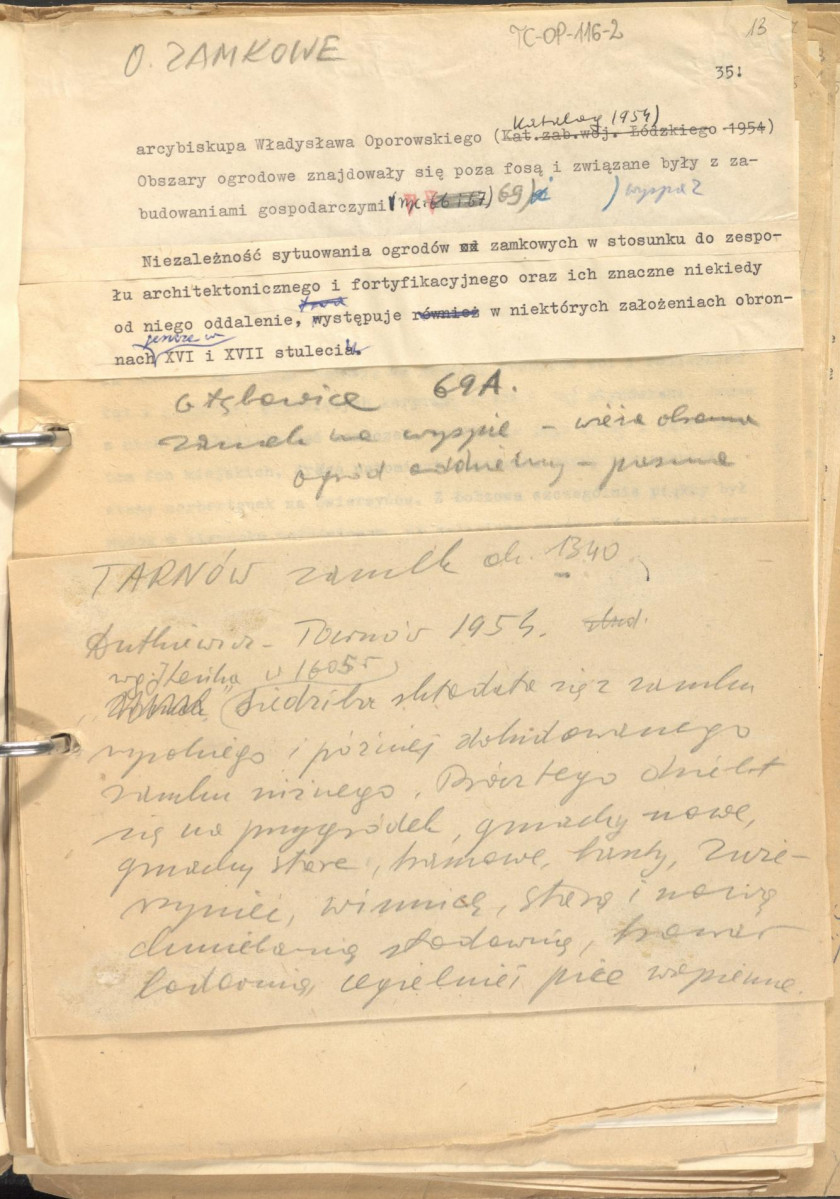 O. ZAMKOWE
TC-OP-116-2
13
35.
Katalog 1954)
arcybiskupa Władysława Oporowskiego (Kat.zab.woj. Łódzkiego 1954)
Obszary ogrodowe znajdowały się poza fosą i związane były z za-
budowaniami gospodarczymi (ryc. 66 i 67) 69) ) wyspa 2
Niezależność sytuowania ogrodów zamkowych w stosunku do zespo-
łu architektonicznego i fortyfikacyjnego oraz ich znaczne niekiedy
od niego oddalenie, występuje również w niektórych założeniach obron-
jeszcze w
nach XVI i XVII stulecia.
Głębowice 69A.
zamek na wyspie – wieża obronna
ogród oddzielny –
TARNÓW zamek ok. 1340
Dutkiewicz – Tarnów 1954.
w 1605 r
Siedziba składała się z zamku
wysokiego i później dobudowanego
zamku niżnego. Prócz tego dzielił
się na przygródek, gmachy nowe,
gmachy stare, bramowe, baszty, zwie-
rzyniec, winnicę, starą i nową
chmielarnię słodownię, browar
lodownię, cegielnię i piec wapienny.